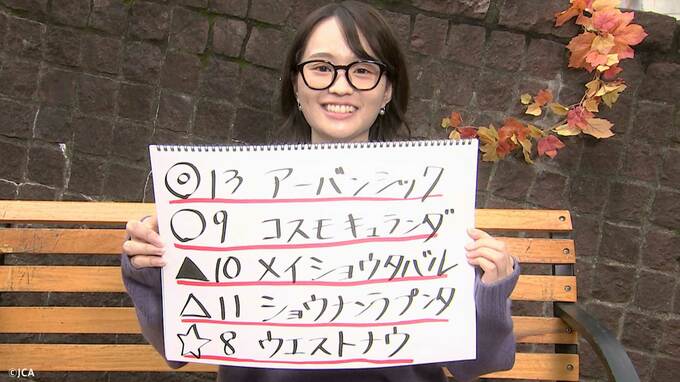 ◎13 アーバンシック
○9 コスモキュランダ
▲10 メイショウタバル
△11 ショウナンラプンタ
☆8 ウエストナウ
©JCA